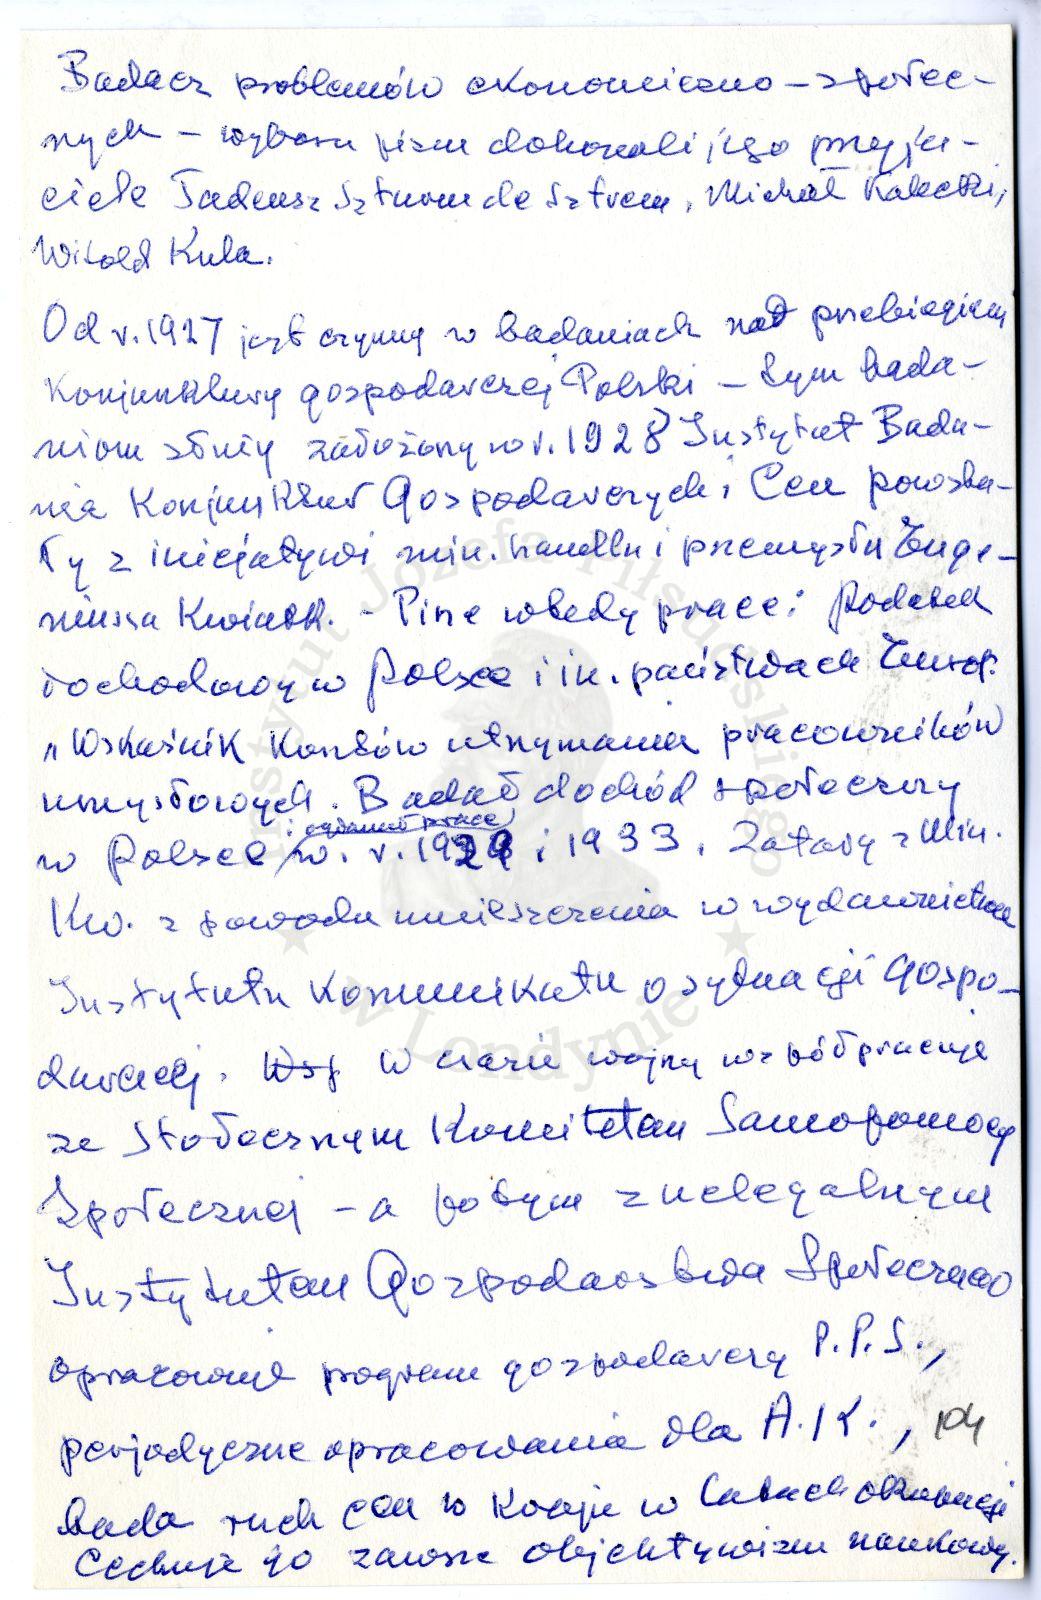 Badacz problemów ekonomiczno – społecz-
nych – wyboru pism dokonali jego przyja-
ciele Tadeusz Szturm de Sztrem, Michał Kalecki,
Witold Kula.
Od r. 1927 jest czynny w badaniach nad przebiegiem
Konjunktury gospodarczej Polski – tym bada-
niom służy założony w r. 1928 Instytut Bada-
nia Konjunktur Gospodarczych i Cen powsta-
ły z inicjatywi min. handlu i przemysłu Euge-
niusza Kwiatk. – Pisze wtedy prace: Podatek
dochodowy w Polsce i in. państwach Europ.
„Wskaźnik Kosztów utrzymania pracowników
umysłowych. Badał dochód społeczny
i ogłaszał prace
w Polsce w. r. 1929 i 1933. Zatarg z Min.
Kw. z powodu umieszczenia w wydawnictwie
Instytutu Komunikatu o sytuacji Gospo-
darczej. Wsp W czasie wojny współpracuje
ze Stołecznym Komitetem Samopomocy
Społecznej – a potym z nielegalnym
Instytutem Gospodarstwa Społecznego
opracowuje program gospodarczy P.P.S.,
perjodyczne opracowania dla A.K.,
Bada ruch cen w Kraju w latach okupacji
Cechuje go zawsze objektywizm naukowy.
Instytut Józefa Piłsudskiego
★ w Londynie ★